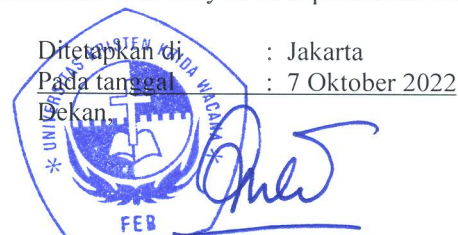 Ditetapkan di : Jakarta
Pada tanggal : 7 Oktober 2022
Dekan,
UNIVERSITAS KRISTEN KRIDA WACANA
FEB